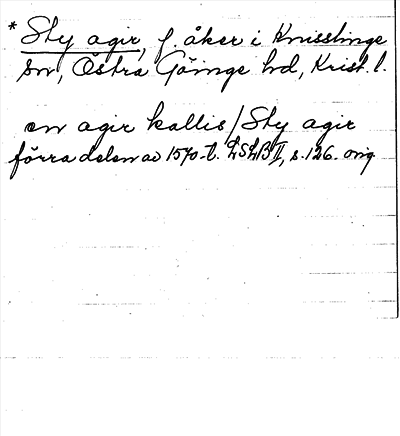 * Sty agir, f. åker i Knisslinge
sn, Östra Göinge hd, Krist. l.
en agir kallis / Sty agir
förra delen av 1570-t. LSLB II, s. 126. orig.